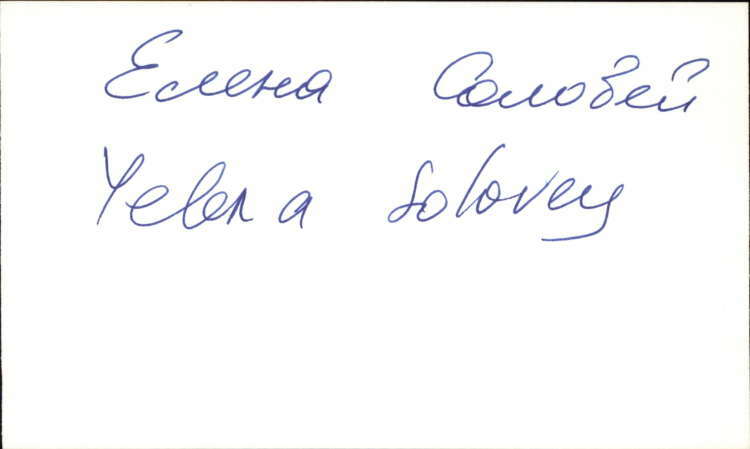 Елена Соловей
Yelena Solovey